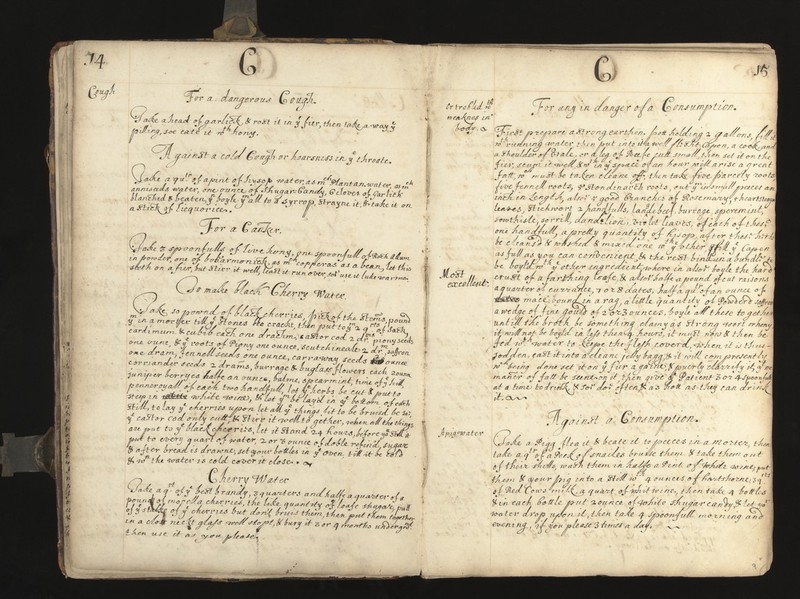 14
C
Cough
For a dangerous Cough.
Take a head of garlick, & rost it in ye fier, then take away ye
pilling, soe eate it wth hony.
Against a cold Cough or hoarsnes in ye throate.
Take a qrt of a pint of hysop water, as mch Plantan water, as mch
anniseeds water, one ounce of Shugar Candy, 6 cloves of Garlick
blanched & beaten, ye boyle ym all to a syrrop, strayne it, & take it on
a stick of licquorice.
For a Canker.
Take 5 spoonfulls of love hony, one spoonfull of
in powder, one of bolearmonick, as mch copperas as a bean, let this
on a fier, but stirr it well, least it run over, soe use it lukewarme.
To make black Cherry Water
Take 20 pownd of black cherries, pick of the stems, pound
ym in a morter till ye stones are cracke, then put to ym of sack,
cardimum & cubbs each one drachm, castor cod 2 dr. piony seeds
one ounc, & ye roots of Piony one ounce, scutchineale 2 drm saffron
one dram, fennell seeds one ounce, carraway seeds ounce
corriander seeds 2 drams, burrage & buglass flowers each 2 ounc
juniper berryes halfe an ounce, balme, spearmint, time of ye hill,
pennoryall of each two handfull, let ye herbs be cut & put to
steep in white wine, & let ym be layd in ye bottom of each
still, to lay ye cherries upon. let all ye things hit to be brused be so,
ye castor cod only cutt, & stirr it well together, when all the things
are put to ye black cherries, let it stand 24 hours, before you still it
put to every quart of water, 2 or 3 ounce of doble refind, sugar
& after bread is drawne, set your bottles in ye oven, till it be cold
& wn the water is cold cover it close.
Cherry Water
Take a qrt of ye best brandy, 3 quarters and halfe a quarter of a
pound of morella cherries, the like quantity of loafe shugar, pull
of ye stalks of ye cherries but don't bruse them, then put them together
in a close neckt glass well stopt, & bury it 3 or 4 months undergrd
then use it as you please.
C
15
or trobld wth
weaknes in
body.
For any in danger of a Consumption.
First prepare a strong earthen pott holding 2 gallons, fill it
wth running water then put into it a well flesht Capon, a cock, and
a shoulder of Veale, or a leg of Beefe cut small, then set it on the
fier, scum it well, & in ye space of an hour will arise a great
fatt, wch must be taken cleane off, then take five parcely roots,
five fennell roots, & standinarch roots, cut ym in small pieces an
inch in length, also 4 good branches of Rosemary, & heartstongue
leaves, stickwort 2 handfulls, lang de beef, burrage, speremint,
sowthisle, sorrill, dandelion, violet leaves, of each of these
one handfull, a pretty quantity of hisope, after these herbs
be cleaned & washed & mixed one wth ye other, fill ye Capon
as full as you can convenient, & the rest binde in a bundle, to
be boyld wth ye other ingredients, where in also boyle the hard
crust of a farthing loafe, & also halfe a pound of cut raisons
a quarter of currance, 7 or 8 dates, halfe a qrt of an ounce of
mace bound in a rag, a little quantity of Powderd saffron
a wedge of fine gould of 2 or 3 ounces, boyle all these together
untill the broth be something clamy as strong wort or hony
it will not be boyld in less then 4 hours, it must now & then be
fed wth water to keepe the flesh coverd, when it is thus
sodden, cast it into a cleane jelly bagg, & it will run presently
wn being done set it on ye fier againe, & purely clarify it, ye
manor of fatt & seasoning it then give ye Patient 3 or 4 spoonfuls
at a time to drink, & soe doe often & as hott as they can drink
it.
Most
excellent.
Against a Consumption.
A pig water
Take a Pigg, flea it, & beate it to peeces in a morter, then
take a qrt of a Peck of snailes bruse them, & take them out
of their shells, wash them in halfe a Pint of White wine, put
them & your pig into a still wth 4 ounces of hartshorne,
of Red Cows milk, a quart of whit wine, then take 4 bottles
& in each bottle put 2 ounce of white shugar candy & let ye
water drop upon it, then take 4 spoonfull morning and
evening. if you please 3 times a day.